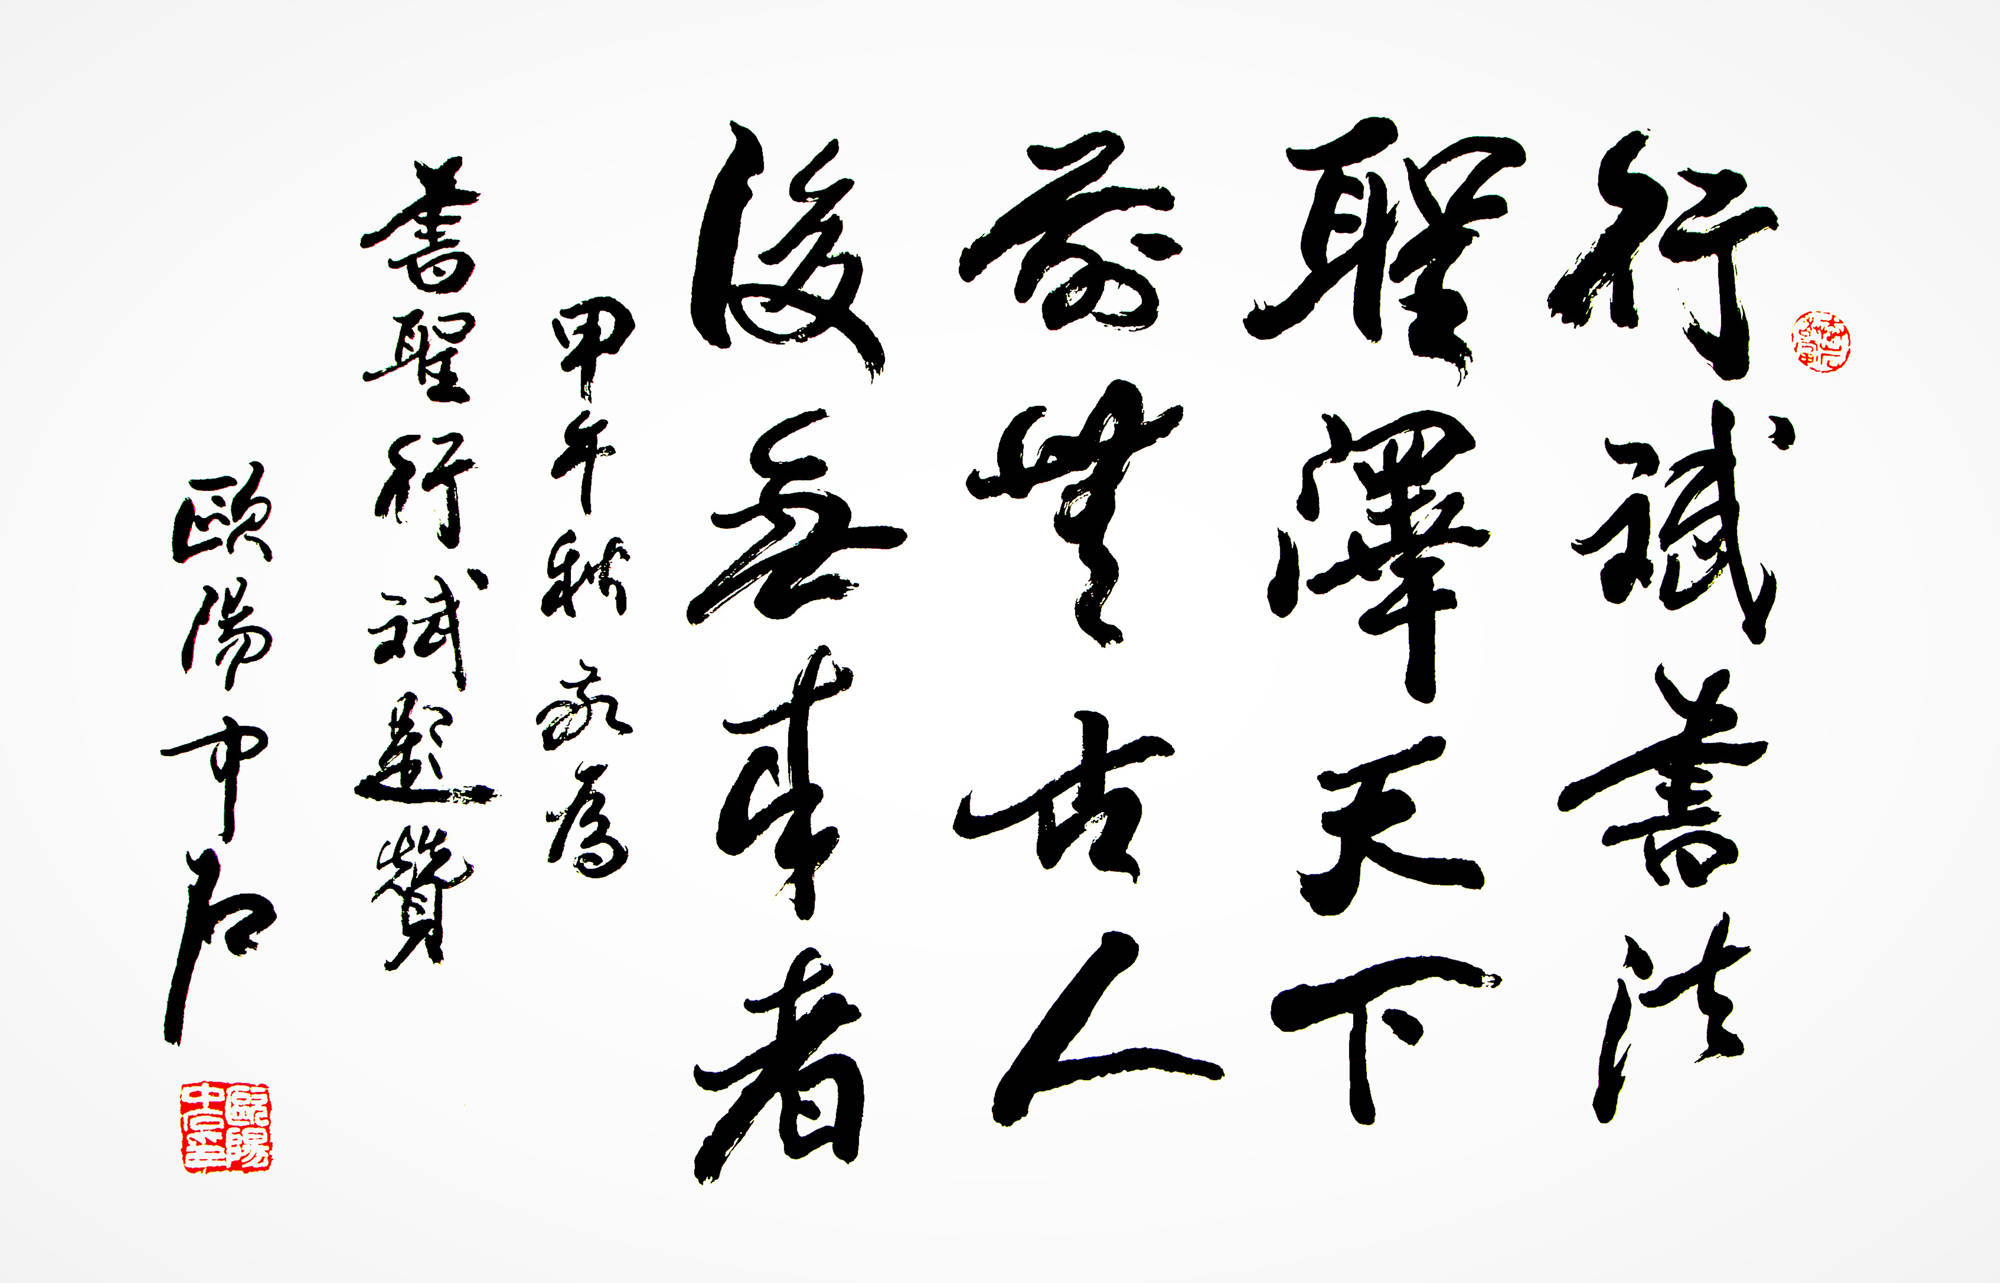 行斌書法
聖澤天下
前無古人
後無來者
甲午秋敬為
書聖行斌題贊
歐陽中石
歐陽
中石印